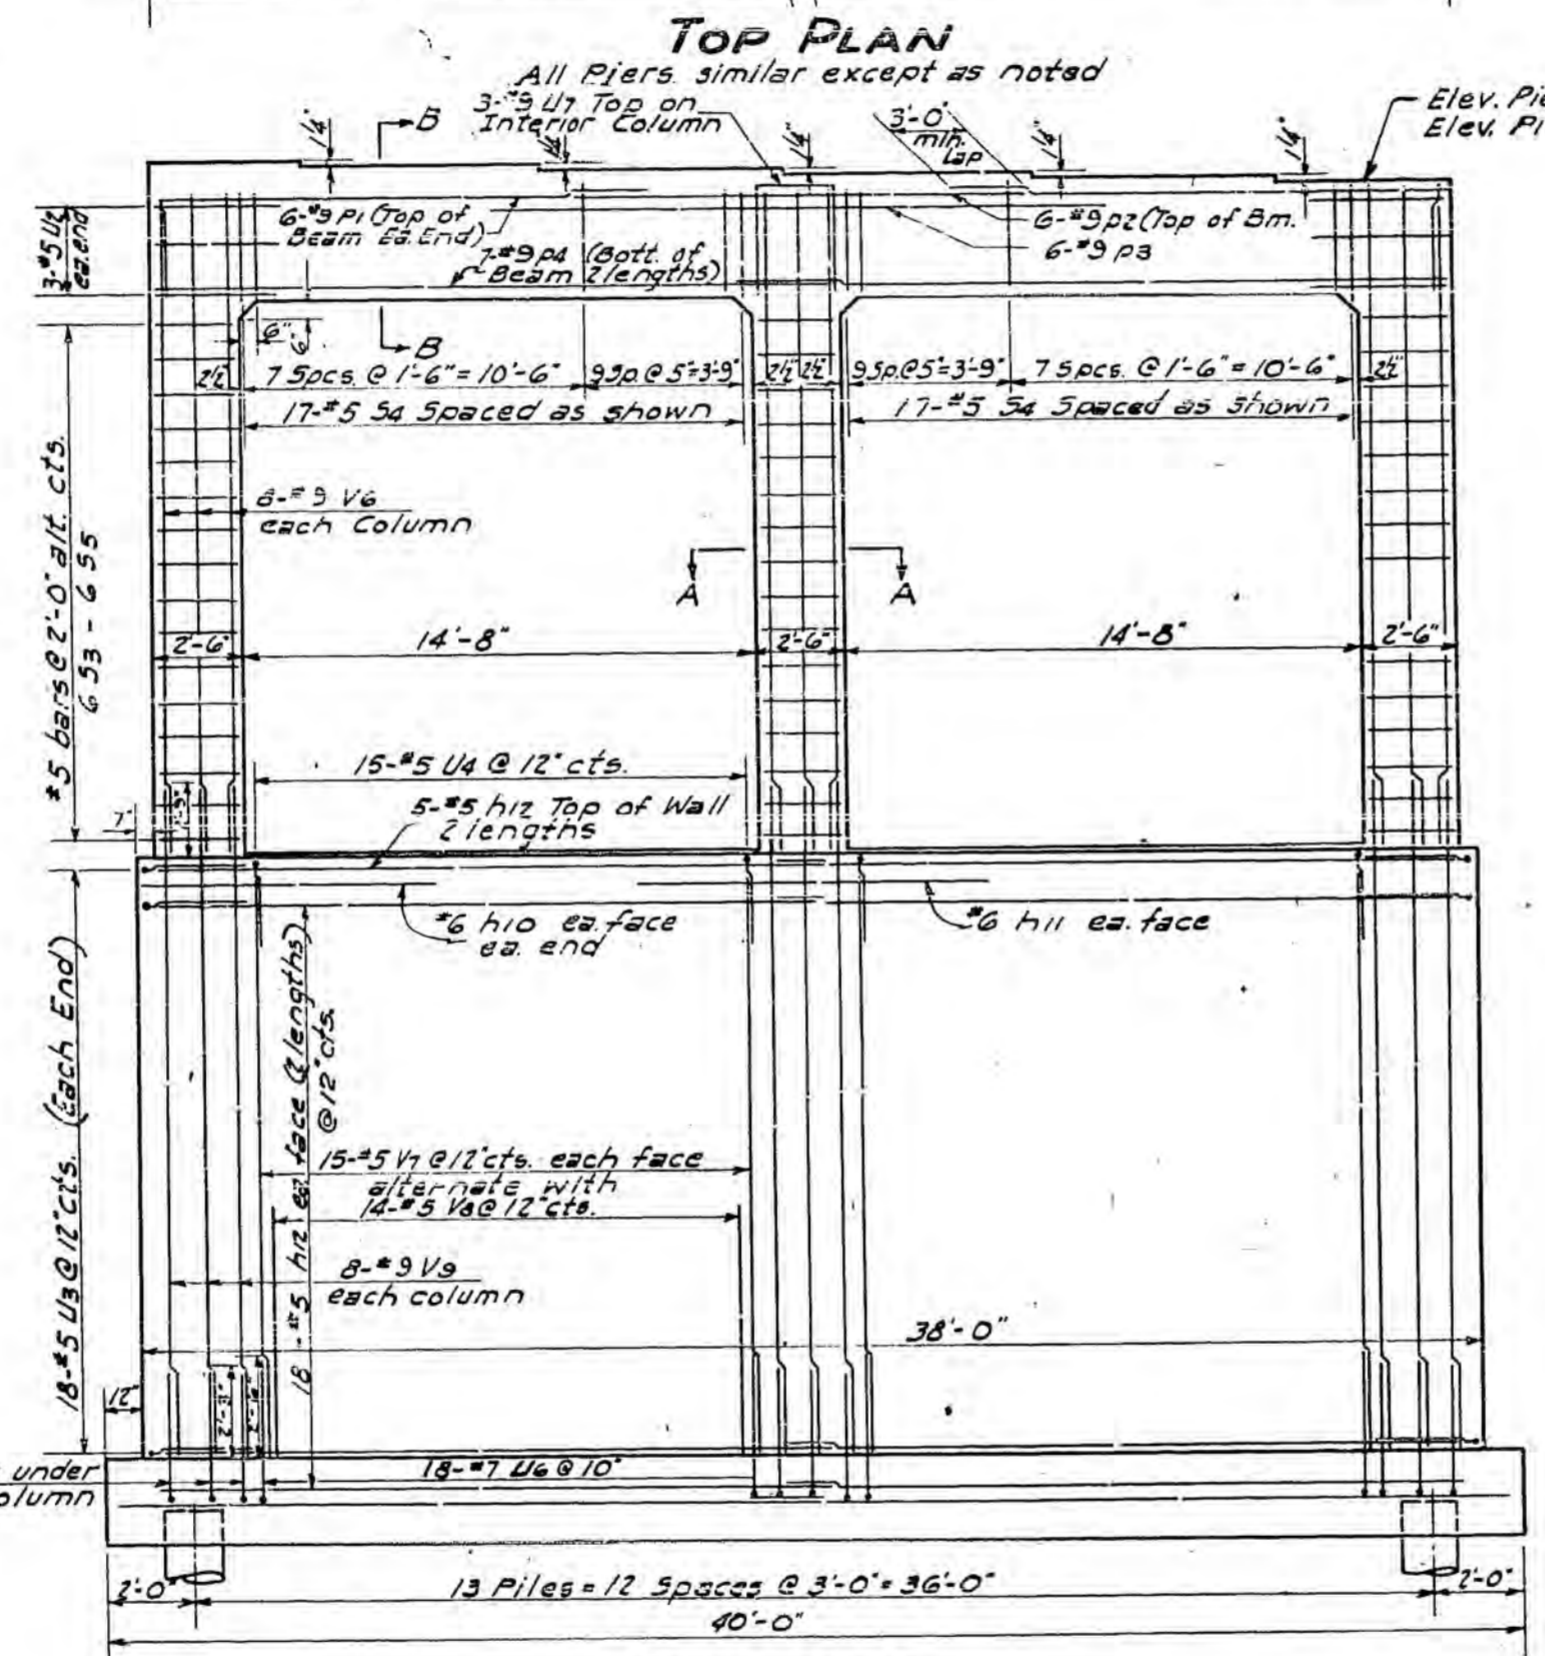 TOP PLAN
All Piers similar except as noted
3-#9 U7 Top on
Interior Column
B
3'-0"
min.
Lap
Elev. Pie
Elev. Pi
1/4"
1/4"
1/4"
1/4"
1/4"
3-#5 U2
ea. end
6-#9 P1 (Top of
Beam Ea. End)
7-#9 P4 (Bott. of
Beam 2 lengths)
6-#9 P2 (Top of Bm.
6-#9 P3
6"
6"
B
2½" 7 Spcs. @ 1'-6" = 10'-6" 9 Sp. @ 5" = 3'-9" 2½" 2½" 9 Sp. @ 5" = 3'-9" 7 Spcs. @ 1'-6" = 10'-6" 2½"
17-#5 S4 Spaced as shown
17-#5 S4 Spaced as shown
#5 bars @ 2'-0" alt. cts.
6 S3 - 6 S5
8-#9 V6
each Column
A
A
2'-6" 14'-8" 2'-6" 14'-8" 2'-6"
15-#5 U4 @ 12" cts.
5-#5 h12 Top of Wall
2 lengths
7"
#6 h10 ea. face
ea. end
#6 h11 ea. face
18-#5 U3 @ 12" cts. (Each End)
18-#5 h12 ea. face (2 lengths)
@ 12" cts.
15-#5 V7 @ 12" cts. each face
alternate with
14-#5 V8 @ 12" cts.
8-#9 V9
each column
38'-0"
12"
under
olumn
18-#7 U6 @ 10"
2'-0" 13 Piles = 12 Spaces @ 3'-0" = 36'-0" 2'-0"
40'-0"